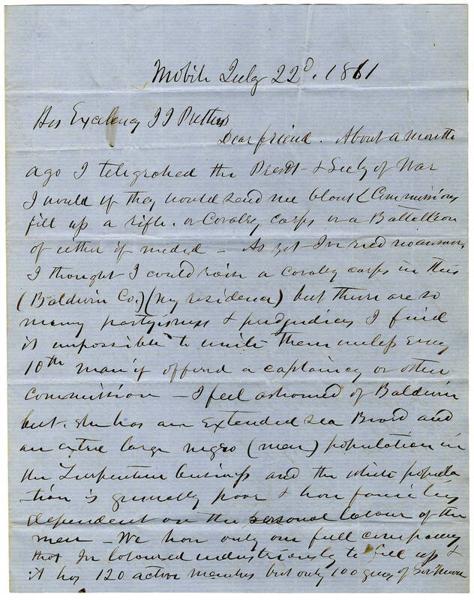 Mobile July 22d. 1861
His Excelency JJ Pettus
Dear friend. About a month
ago I telegrahed the Presdt & Secty of War
I would if they would send me blank Commissions
fill up a rifle. or Cavalry corps or a Battallion
of either if needed — As yet no answer
I thought I could raise a cavalry corps in this
(Baldwin Co.) (my residence) but there are so
many partyisms & prejudices I find
it impossible to unite them unless every
10th man is offered a captaincy or other
commission — I feel ashamed of Baldwin
but she has an Extended Sea Board and
an extra large negro (men) population in
the Turpentine business and the white popula
tion is generally poor & have families
dependent on the personal labour of the
men — We have only one full company
that I laboured industriously to fill up &
it has 120 active members but only 100 guns